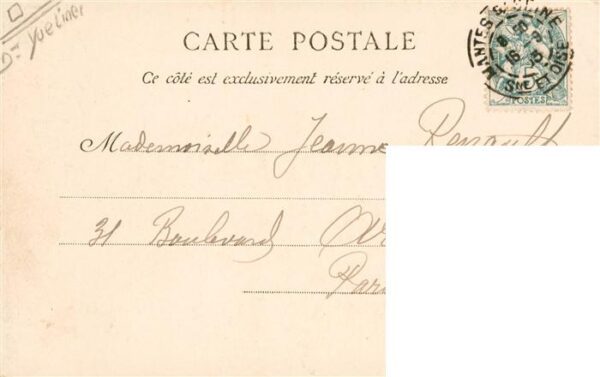 Yvelines
CARTE POSTALE
Ce côté est exclusivement réservé à l'adresse
MANTES
SNE ET OISE
POSTES
Mademoiselle Jeanne Renault
31 Boulevard